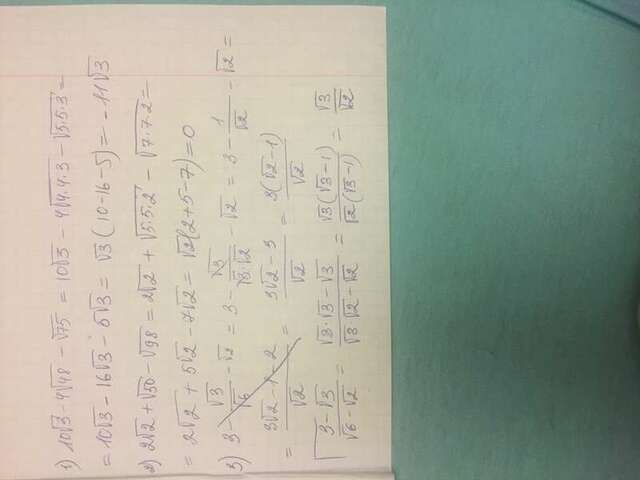 1) 10√3 - 4√48 - √75 = 10√3 - 4√4·4·3 - √5·5·3 =
= 10√3 - 16√3 - 5√3 = √3 (10-16-5) = -11√3
2) 2√2 + √50 - √98 = 2√2 + √5·5·2 - √7·7·2 =
= 2√2 + 5√2 - 7√2 = √2(2+5-7) = 0
3) 3 - √3/√6 - √2 = 3 - √3/√3·√2 - √2 = 3 - 1/√2 - √2 =
= 3√2-1-2/√2 = 3√2-3/√2 = 3(√2-1)/√2
3-√3/√6-√2 = √3·√3-√3/√3 √2-√2 = √3(√3-1)/√2(√3-1) = √3/√2